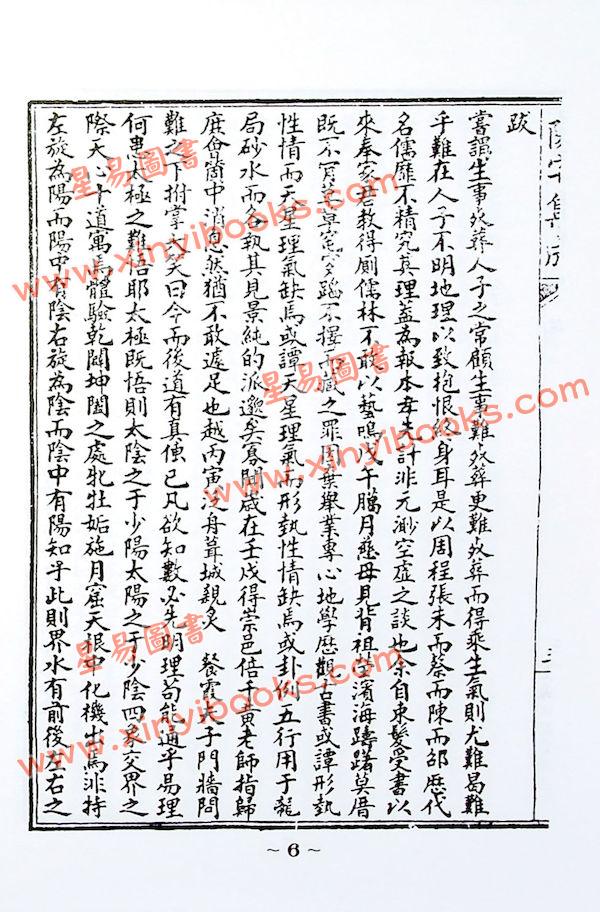 跋
嘗謂生事死葬人子之常顧生事難死葬更難死葬而得乘生氣則尤難曷難
乎難在人子不明地理以致抱恨終身耳是以周程張朱而蔡而陳而邵歷代
名儒靡不精究真理蓋為報本 計非元渺空虛之談也余自束髮受書以
來奉家君教得廁儒林不敢以藝鳴戊午臘月慈母見背祖塋濱海躊躇莫厝
既不 罪因棄舉業專心地學歷觀古書或譚形勢
性情而天星理氣缺焉或譚天星理氣而形勢性情缺焉或卦例五行用于龍
局砂水而各執其見景純的派邈矣寡聞歲在壬戌得崇邑倍千黃老師指歸
庶僉箇中消息然猶不敢遽足也越丙寅泛舟葺城親炙 餐霞夫子門牆問
難之下拊掌大笑曰今而後道有真傳已凡欲知數必先明理苟能通乎易理
何患太極之難悟耶太極既悟則太陰之于少陽太陽之于少陰四象交界之
際天心十道寓焉體驗乾闢坤闔之處牝牡姤施月窟天根中化機出焉非特
左旋為陽而陽中有陰右旋為陰而陰中有陽知乎此則界水有前後左右之
~6~
星易圖書
www.xinyibooks.com
星易圖書
www.xinyibooks.com
星易圖書
www.xinyibooks.com